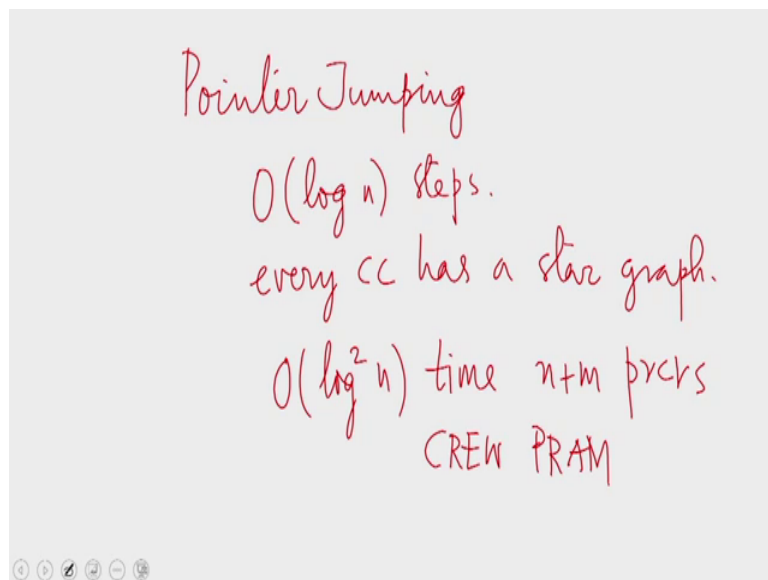 Pointer Jumping
O(log n) steps.
every cc has a star graph.
O(log² n) time n+m prcrs
CREW PRAM